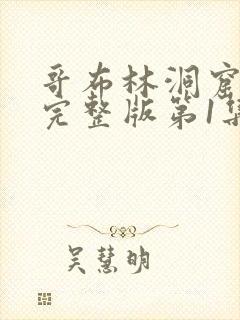 哥布林洞窟
完整版第1集
吴慧明